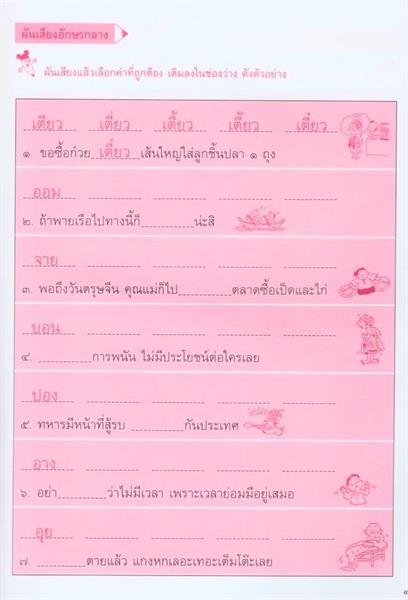 ผันเสียงอักษรกลาง
ผันเสียงแล้วเลือกคำที่ถูกต้อง เติมลงในช่องว่าง ดังตัวอย่าง
เตียว เตี่ยว เตี้ยว เตี๊ยว เตี๋ยว
๑. ขอซื้อก๋วยเตี๋ยวเส้นใหญ่ใส่ลูกชิ้นปลา ๑ ถุง
ออม
๒. ถ้าพายเรือไปทางนี้ก็__________น่ะสิ
จาย
๓. พอถึงวันตรุษจีน คุณแม่ก็ไป__________ตลาดซื้อเป็ดและไก่
บอน
๔. __________การพนัน ไม่มีประโยชน์ต่อใครเลย
ปอง
๕. ทหารมีหน้าที่สู้รบ __________กันประเทศ
อาง
๖. อย่า__________ว่าไม่มีเวลา เพราะเวลาย่อมมีอยู่เสมอ
อุย
๗. __________ตายแล้ว แกงหกเลอะเทอะเต็มโต๊ะเลย